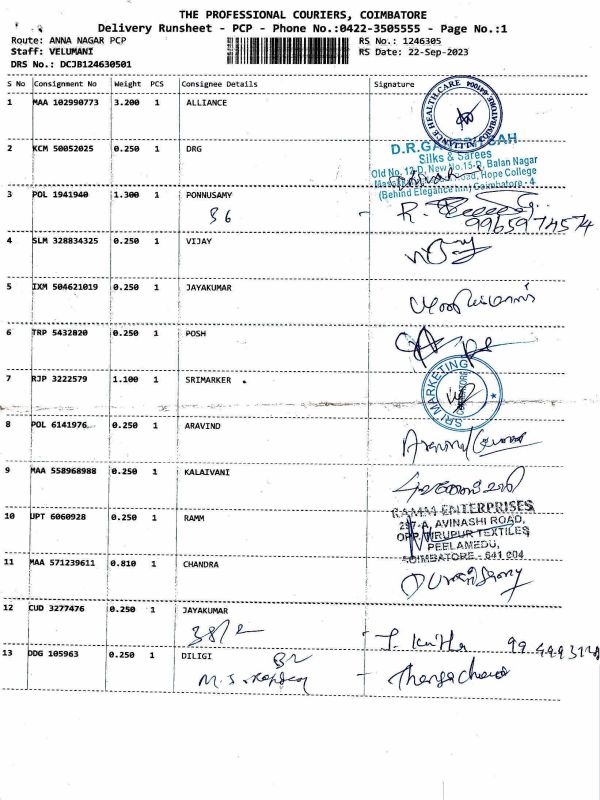 THE PROFESSIONAL COURIERS, COIMBATORE
Delivery Runsheet - PCP - Phone No.:0422-3505555 - Page No.:1
Route: ANNA NAGAR PCP RS No.: 1246305
Staff: VELUMANI RS Date: 22-Sep-2023
DRS No.: DCJB124630501
S No Consignment No Weight PCS Consignee Details Signature
1 MAA 102990773 3.200 1 ALLIANCE
2 KCM 50052025 0.250 1 DRG
Silks & Sarees
Old No. 12-D, New No.15-B, Balan Nagar
Road, Hope College
(Behind Elegance Inn) Coimbatore - 4
3 POL 1941940 1.300 1 PONNUSAMY
36 9965974574
4 SLM 328834325 0.250 1 VIJAY
5 IXM 504621019 0.250 1 JAYAKUMAR
6 TRP 5432820 0.250 1 POSH
7 RJP 3222579 1.100 1 SRIMARKER
SRI MARKETING
8 POL 6141976 0.250 1 ARAVIND
9 MAA 558968988 0.250 1 KALAIVANI
10 UPT 6060928 0.250 1 RAMM
RAMM ENTERPRISES
297-A, AVINASHI ROAD,
OPP. TIRUPUR TEXTILES
PEELAMEDU,
COIMBATORE - 641 004
11 MAA 571239611 0.810 1 CHANDRA
12 CUD 3277476 0.250 1 JAYAKUMAR
38/2
13 DDG 105963 0.250 1 DILIGI